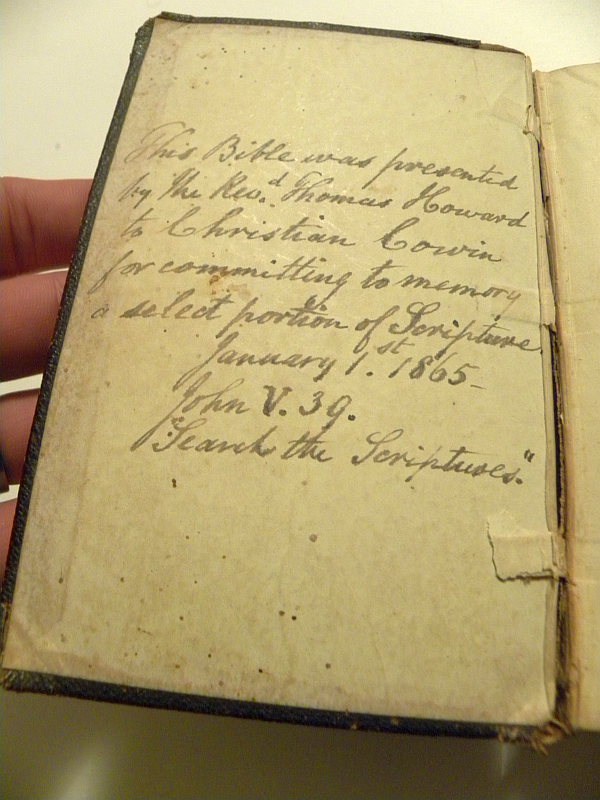 This Bible was presented
by the Rev.d Thomas Howard
to Christian Cowin
for committing to memory
a select portion of Scripture
January 1.st 1865-
John V. 39.
"Search the Scriptures."